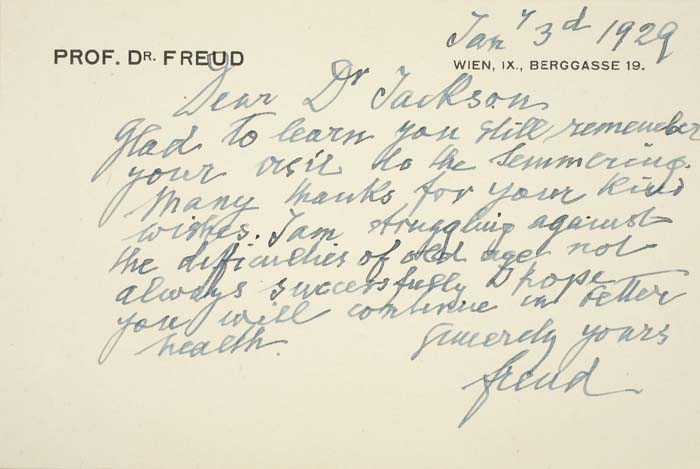 Jan y 3d 1929
PROF. DR. FREUD
WIEN, IX., BERGGASSE 19.
Dear Dr Jackson
Glad to learn you still remember
your visit to the Semmering.
Many thanks for your kind
wishes. I am struggling against
the difficulties of old age not
always successfully I hope
you will continue in better
health.
Sincerely yours
Freud